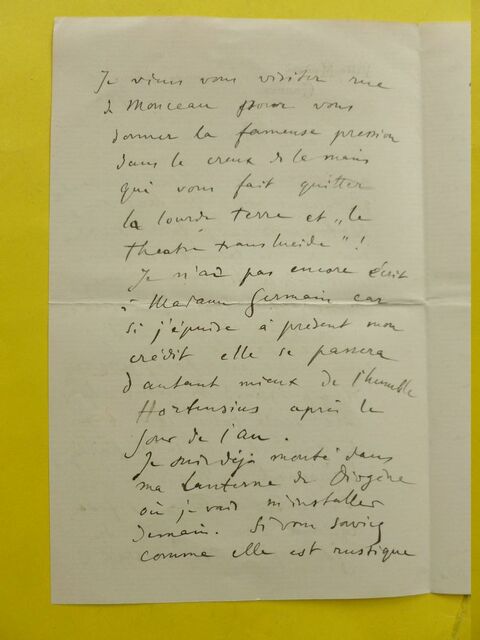 Je viens vous visiter rue
de Monceau pour vous
donner la fameuse pression
dans le creux de la main
qui vous fait quitter
la lourde terre et „le
theatre translucide" !
Je n'ai pas encore écrit
à Madame Germain car
si j'épuise à présent mon
crédit elle se passera
d'autant mieux de l'humble
Hortensius après le
Jour de l'an.
Je suis déjà monté dans
ma Lanterne de Diogène
où je vais m'installer
demain. Si vous saviez
comme elle est rustique